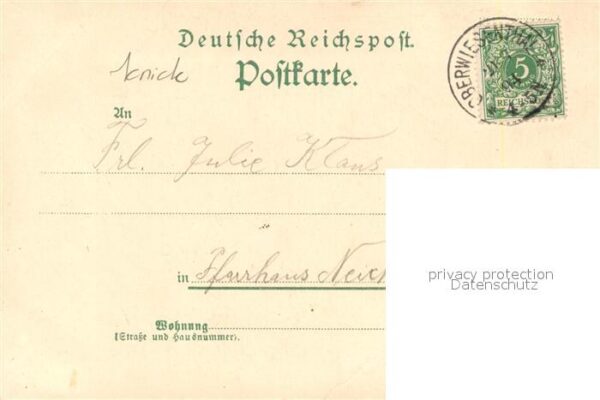 Deutsche Reichspost.
knick
Postkarte.
An
Frl. Julie Klaus
in Pfarrhaus Neich
Wohnung
(Straße und Hausnummer).
OBERWIESENTHAL
5
REICHSPOST
privacy protection
Datenschutz